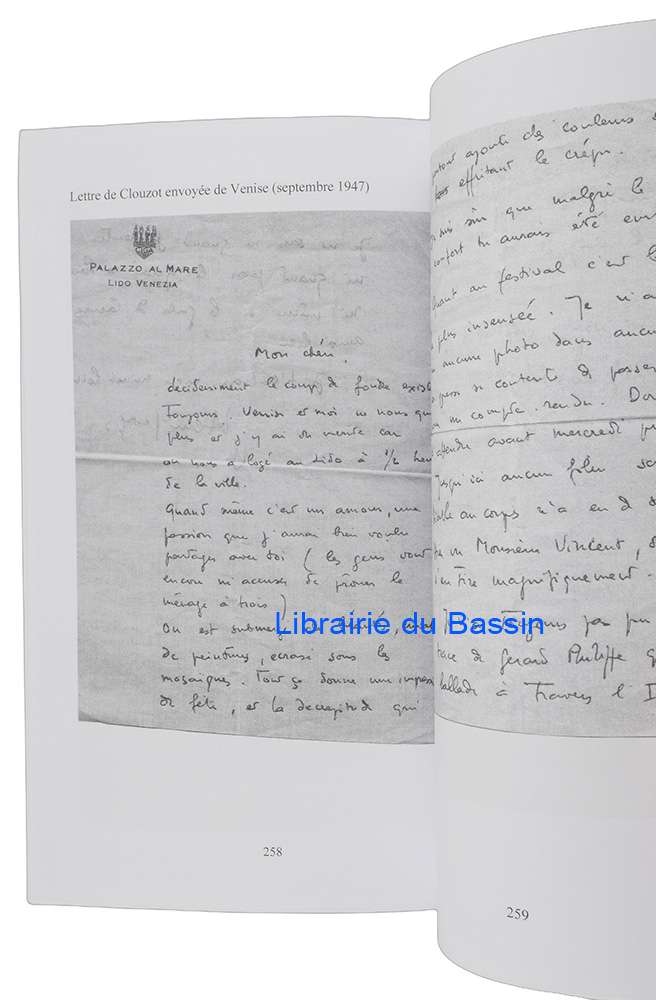 Lettre de Clouzot envoyée de Venise (septembre 1947)
CIGA
PALAZZO AL MARE
LIDO VENEZIA
Mon chéri.
décidemment le coup de foudre existe
Toujours. Venise et moi ne nous qui
plus et j'y ai du mérite car
on nous a logé au Lido à 1/2 heu
de la ville.
Quand même c'est un amour, une
passion que j'aurai bien voulu
partager avec toi (les gens vont
encore m'accuser de prôner le
ménage à trois)
On est submergé de
de peintures, écrasé sous les
mosaïques. Tout ça donne une impress
de fête, et la decrepitude qui
258
ajouté des couleurs
effritant le crépi.
suis sûr que malgré le
confort tu aurais été
Quant au festival c'est l
plus insensée. Je n'a
aucune photo dans aucun
se contente de passer
un compte-rendu. Don
attendu avant mercredi
Jusqu'ici aucun film
diable au corps n'a eu de
vu Monsieur Vincent,
s'en tire magnifiquement.
Toujours pas pu
trace de Gerard Philippe q
ballade à Travers l'I
259
Librairie du Bassin